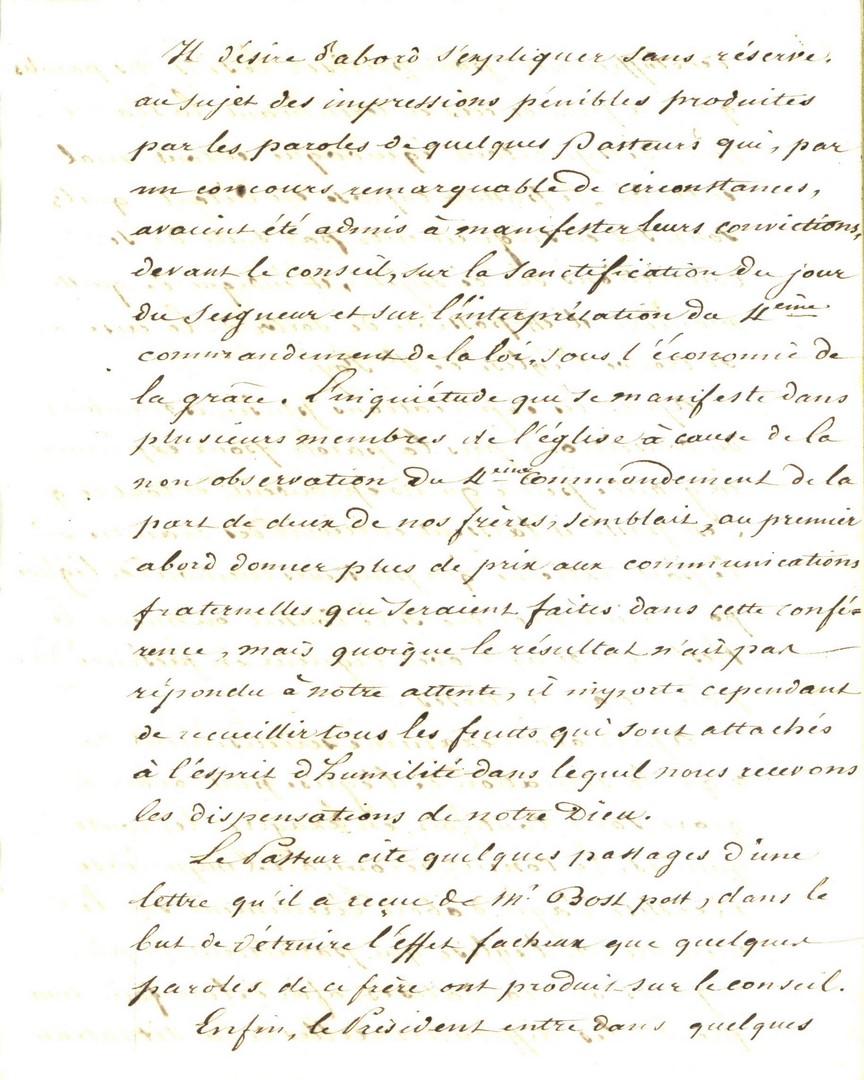 Il désire d'abord s'expliquer sans réserve.
au sujet des impressions pénibles produites
par les paroles de quelques Pasteurs qui, par
un concours remarquable de circonstances,
avaient été admis à manifester leurs convictions,
devant le conseil, sur la sanctification du jour
du Seigneur et sur l'interprétation du 4ème
commandement de la loi, sous l'économie de
la grâce. L'inquiétude qui se manifeste dans
plusieurs membres de l'église à cause de la
non observation du 4ème commandement de la
part de deux de nos frères, semblait, au premier
abord donner plus de prix aux communications
fraternelles qui seraient faites dans cette confé-
rence, mais quoique le résultat n'ait pas
répondu à notre attente, il importe cependant
de recueillir tous les fruits qui sont attachés
à l'esprit d'humilité dans lequel nous recevons
les dispensations de notre Dieu.
Le Pasteur cite quelques passages d'une
lettre qu'il a reçue de Mr Bost past, dans le
but de détruire l'effet facheux que quelques
paroles de ce frère ont produit sur le conseil.
Enfin, le Président entre dans quelques